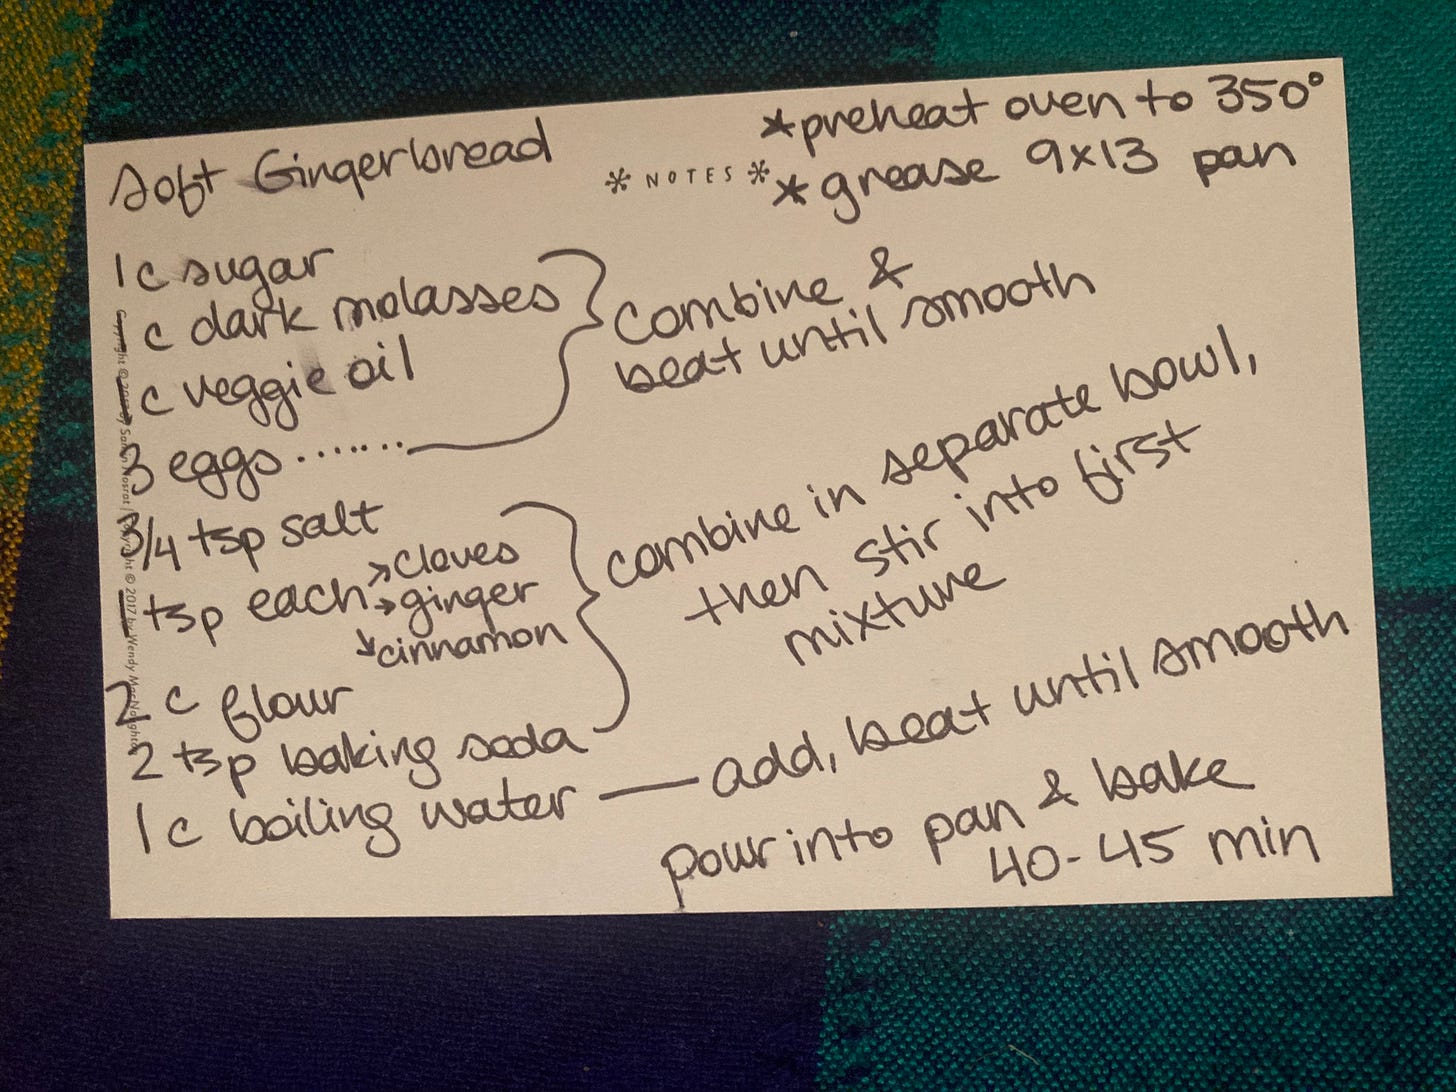 Soft Gingerbread
* NOTES *
*preheat oven to 350°
*grease 9x13 pan
1 c sugar
1 c dark molasses
1 c veggie oil
3 eggs.......
combine &
beat until smooth
3/4 tsp salt
1 tsp each →cloves
→ginger
→cinnamon
2 c flour
2 tsp baking soda
combine in separate bowl,
then stir into first
mixture
1 c boiling water — add, beat until smooth
pour into pan & bake
40-45 min
© 2017 by Wendy MacNaughton